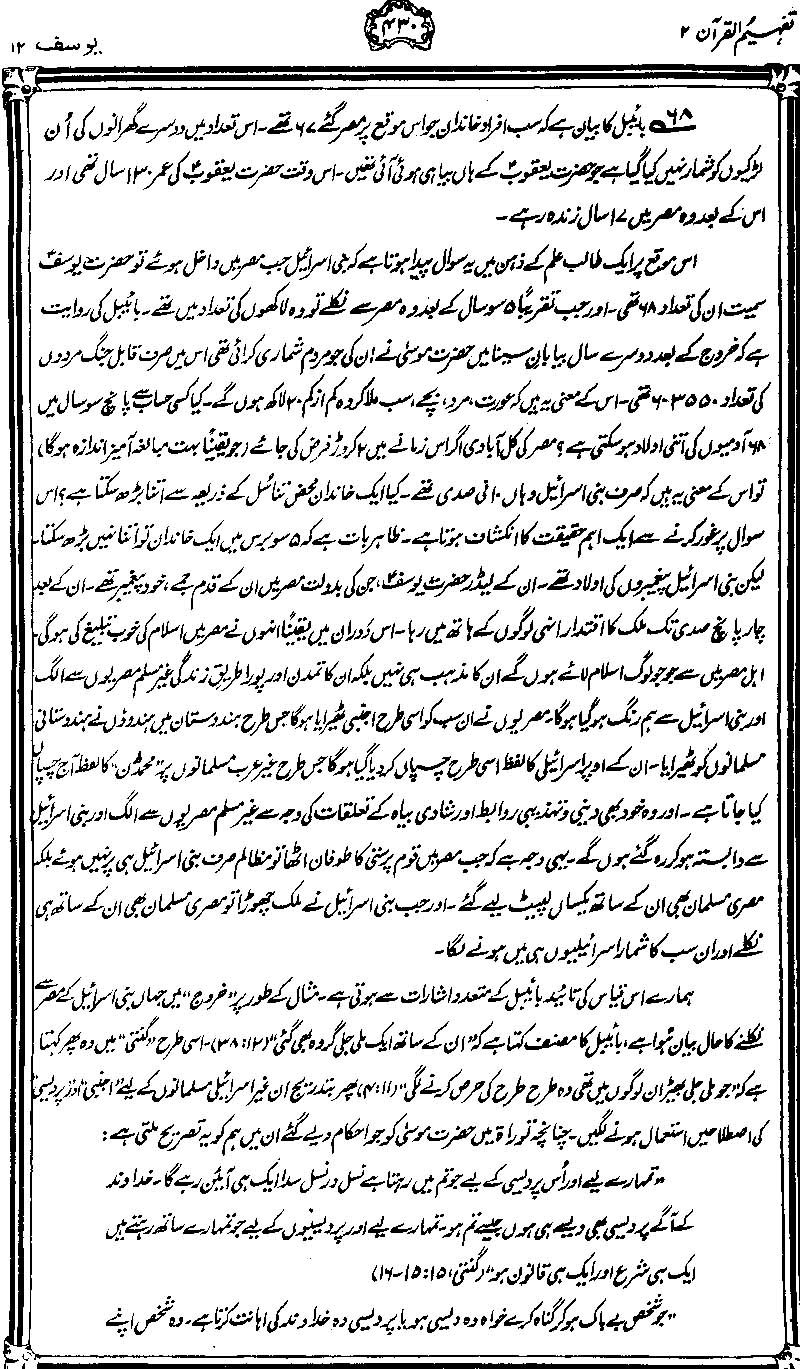 تفہیم القرآن ۲
۴۳۰
یوسف ۱۲
۶۸ بائیبل کا بیان ہے کہ سب افراد خاندان جو اس موقع پر مصر گئے ۶۷ تھے۔ اس تعداد میں دوسرے گھرانوں کی اُن
لڑکیوں کو شمار نہیں کیا گیا ہے جو حضرت یعقوبؑ کے ہاں بیاہی ہوئی آئی تھیں۔ اس وقت حضرت یعقوبؑ کی عمر ۱۳۰ سال تھی اور
اس کے بعد وہ مصر میں ۱۷ سال زندہ رہے۔
اس موقع پر ایک طالب علم کے ذہن میں یہ سوال پیدا ہوتا ہے کہ بنی اسرائیل جب مصر میں داخل ہوئے تو حضرت یوسفؑ
سمیت ان کی تعداد ۶۸ تھی۔ اور جب تقریباً ۵ سو سال کے بعد وہ مصر سے نکلے تو وہ لاکھوں کی تعداد میں تھے۔ بائیبل کی روایت
ہے کہ خروج کے بعد دوسرے سال بیابان سینا میں حضرت موسیٰ نے ان کی جو مردم شماری کرائی تھی اس میں صرف قابل جنگ مردوں
کی تعداد ۶۰۳۵۵۰ تھی۔ اس کے معنی یہ ہیں کہ عورت، مرد، بچے، سب ملا کر وہ کم از کم ۲۰ لاکھ ہوں گے۔ کیا کسی حساب سے پانچ سو سال میں
۶۸ آدمیوں کی اتنی اولاد ہو سکتی ہے؟ مصر کی کل آبادی اگر اس زمانے میں ۲ کروڑ فرض کی جائے (جو یقیناً بہت مبالغہ آمیز اندازہ ہوگا)
تو اس کے معنی یہ ہیں کہ صرف بنی اسرائیل وہاں ۱۰ فی صدی تھے۔ کیا ایک خاندان محض تناسُل کے ذریعہ سے اتنا بڑھ سکتا ہے؟ اس
سوال پر غور کرنے سے ایک اہم حقیقت کا انکشاف ہوتا ہے۔ ظاہر بات ہے کہ ۵ سو برس میں ایک خاندان تو اتنا نہیں بڑھ سکتا۔
لیکن بنی اسرائیل پیغمبروں کی اولاد تھے۔ ان کے لیڈر حضرت یوسفؑ، جن کی بدولت مصر میں ان کے قدم جمے، خود پیغمبر تھے۔ ان کے بعد
چار پانچ صدی تک ملک کا اقتدار انہی لوگوں کے ہاتھ میں رہا۔ اس دَوران میں یقیناً انہوں نے مصر میں اسلام کی خوب تبلیغ کی ہوگی۔
اہل مصر میں سے جو جو لوگ اسلام لائے ہوں گے ان کا مذہب ہی نہیں بلکہ ان کا تمدن اور پورا طریق زندگی غیر مسلم مصریوں سے الگ
اور بنی اسرائیل سے ہم رنگ ہوگیا ہوگا۔ مصریوں نے ان سب کو اسی طرح اجنبی ٹھیرایا ہوگا جس طرح ہندوستان میں ہندوؤں نے ہندوستانی
مسلمانوں کو ٹھیرایا۔ ان کے اوپر اسرائیلی کا لفظ اسی طرح چسپاں کر دیا گیا ہوگا جس طرح غیر عرب مسلمانوں پر ”محمڈن“ کا لفظ آج چسپاں
کیا جاتا ہے۔ اور وہ خود بھی دینی و تہذیبی روابط اور شادی بیاہ کے تعلقات کی وجہ سے غیر مسلم مصریوں سے الگ اور بنی اسرائیل
سے وابستہ ہو کر رہ گئے ہوں گے۔ یہی وجہ ہے کہ جب مصر میں قوم پرستی کا طوفان اٹھا تو مظالم صرف بنی اسرائیل ہی پر نہیں ہوئے بلکہ
مصری مسلمان بھی ان کے ساتھ یکساں لپیٹ لیے گئے۔ اور جب بنی اسرائیل نے ملک چھوڑا تو مصری مسلمان بھی ان کے ساتھ ہی
نکلے اور ان سب کا شمار اسرائیلیوں ہی میں ہونے لگا۔
ہمارے اس قیاس کی تائید بائیبل کے متعدد اشارات سے ہوتی ہے۔ مثال کے طور پر ”خروج“ میں جہاں بنی اسرائیل کے مصر سے
نکلنے کا حال بیان ہُوا ہے، بائیبل کا مصنف کہتا ہے کہ ”ان کے ساتھ ایک ملی جلی گروہ بھی گئی“ (۱۲: ۳۸)۔ اسی طرح ”گنتی“ میں وہ پھر کہتا
ہے کہ ”جو ملی جلی بھیڑ ان لوگوں میں تھی وہ طرح طرح کی حرص کرنے لگی“ (۱۱: ۴) پھر بتدریج ان غیر اسرائیلی مسلمانوں کے لیے ”اجنبی“ اور ”پردیسی“
کی اصطلاحیں استعمال ہونے لگیں۔ چنانچہ توراۃ میں حضرت موسیٰ کو جو احکام دیے گئے ان میں ہم کو یہ تصریح ملتی ہے:
”تمہارے لیے اور اُس پردیسی کے لیے جو تم میں رہتا ہے نسل در نسل سدا ایک ہی آئین رہے گا۔ خداوند
کے آگے پردیسی بھی ویسے ہی ہوں جیسے تم ہو۔ تمہارے لیے اور پردیسیوں کے لیے جو تمہارے ساتھ رہتے ہیں
ایک ہی شرع اور ایک ہی قانون ہو“ (گنتی، ۱۵: ۱۵-۱۶)
”جو شخص بے باک ہو کر گناہ کرے خواہ وہ دیسی ہو یا پردیسی وہ خداوند کی اہانت کرتا ہے۔ وہ شخص اپنے